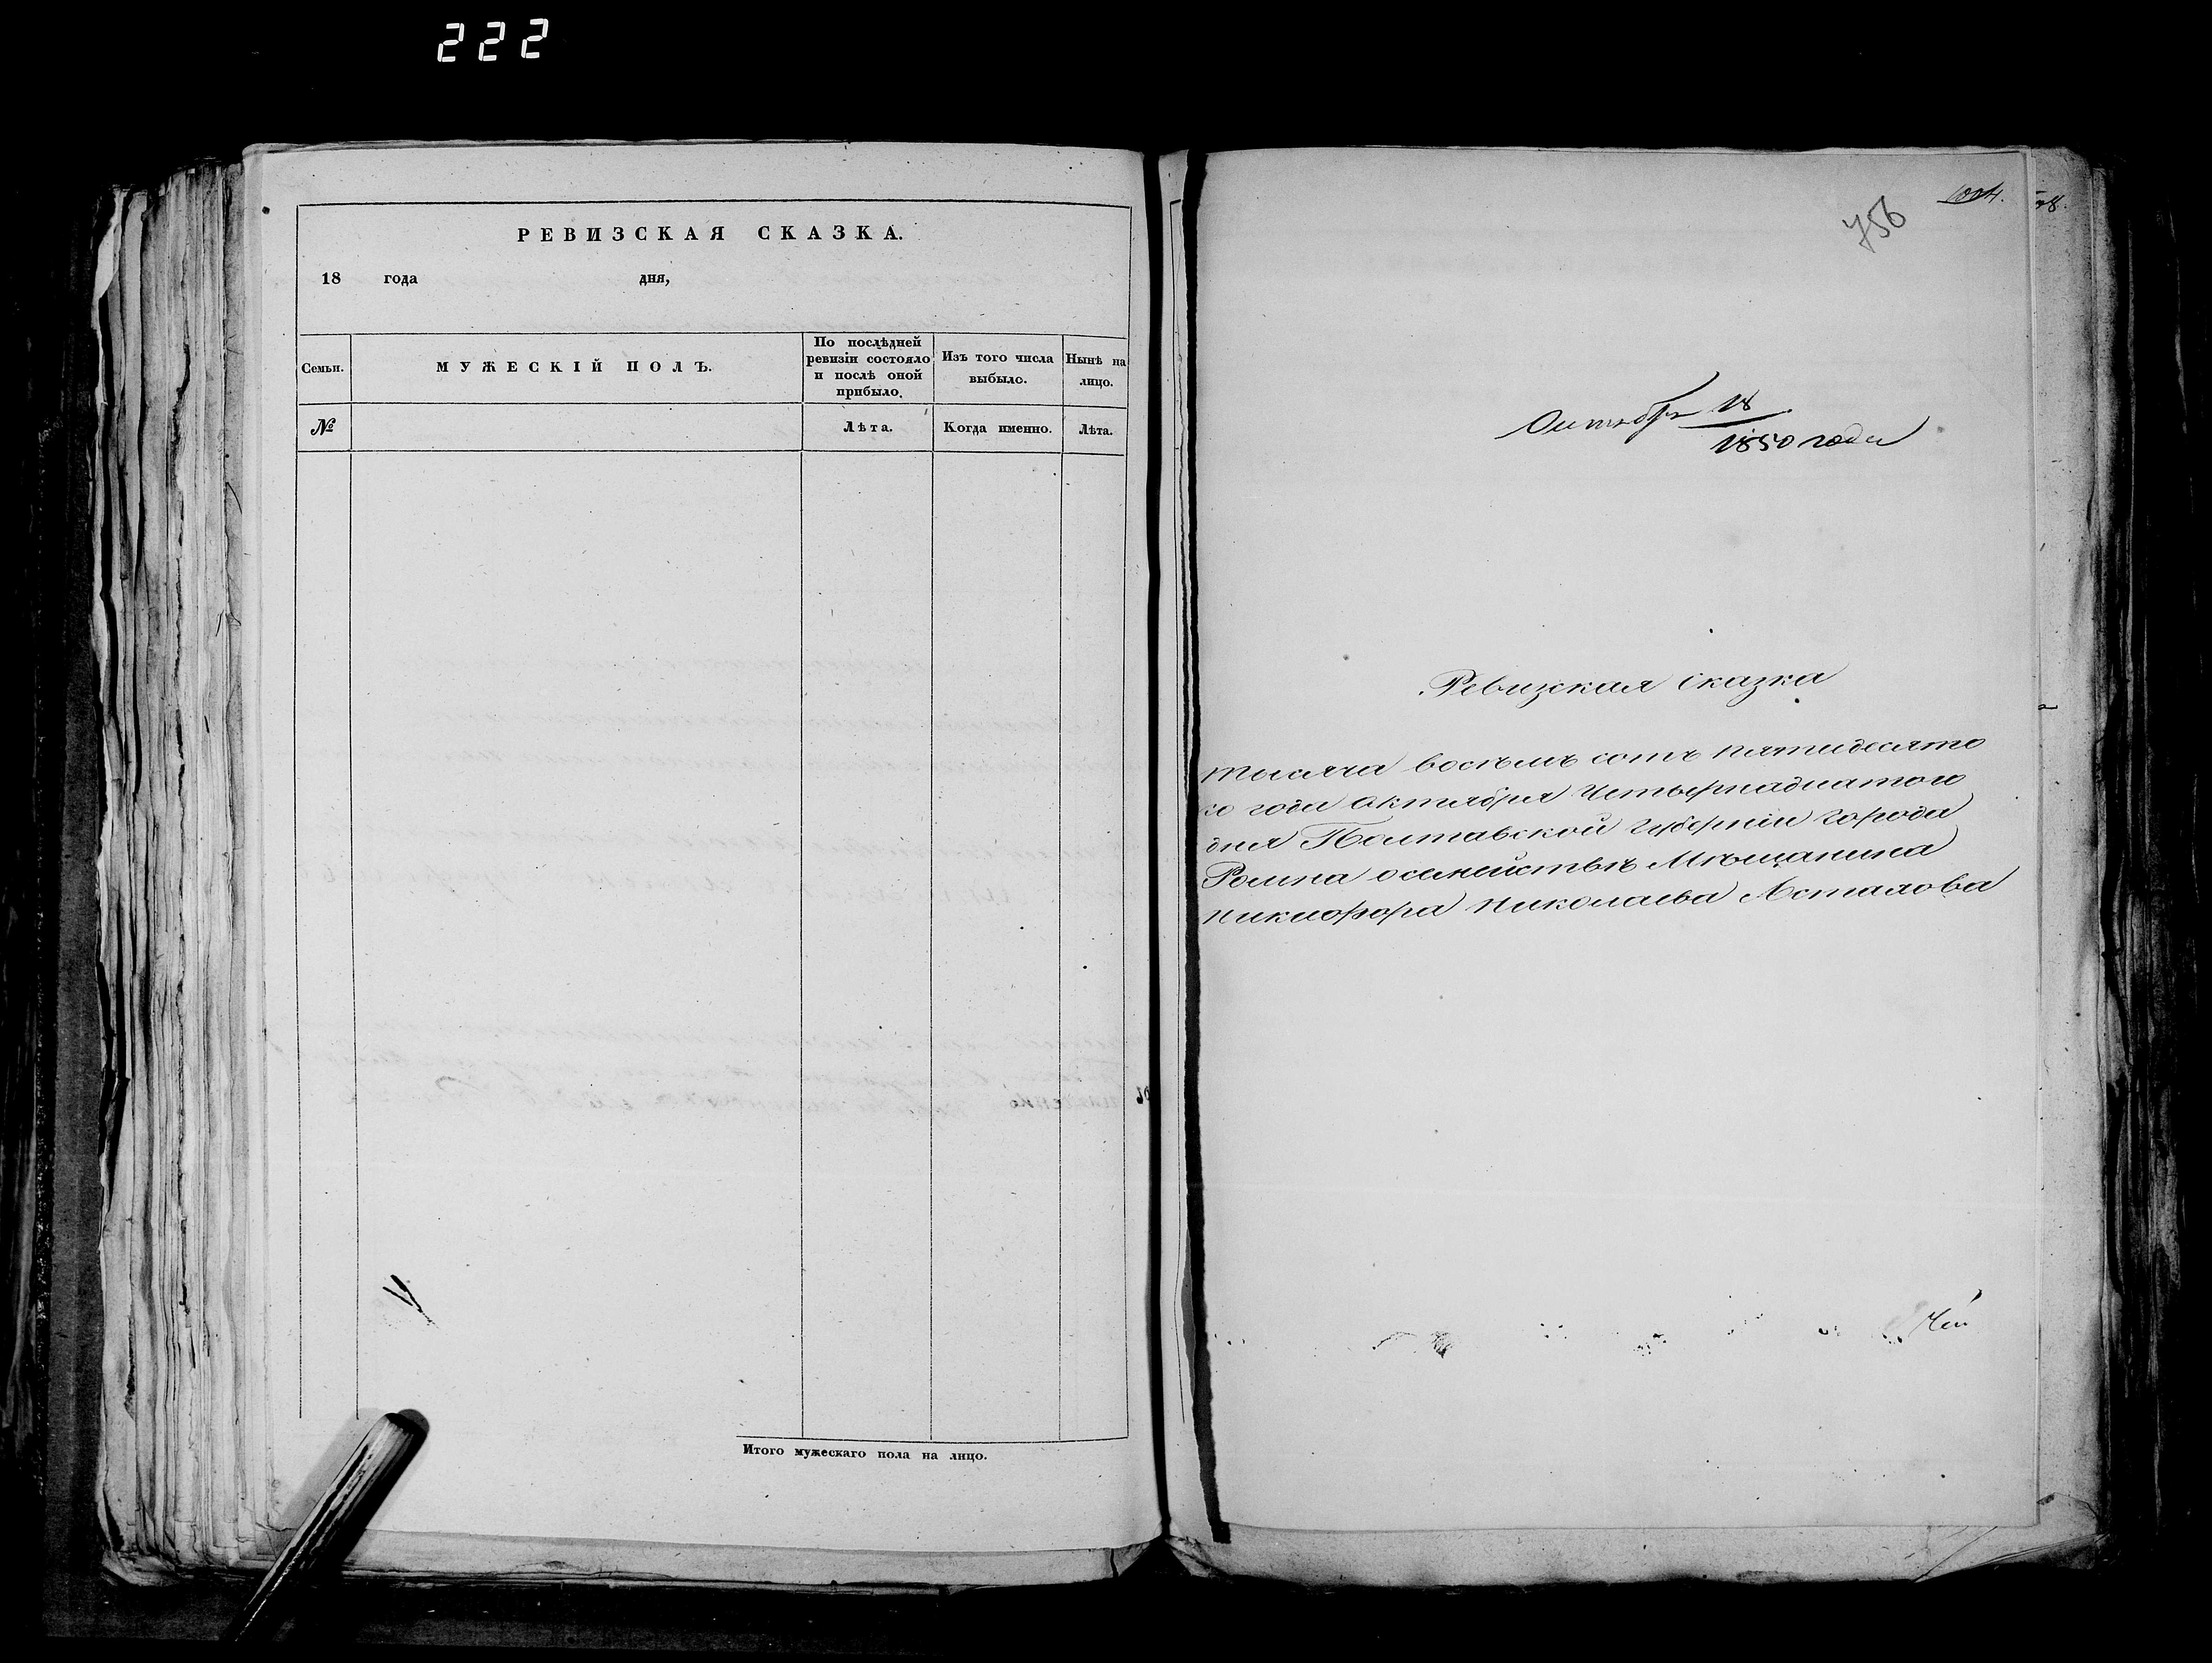 222
РЕВИЗСКАЯ СКАЗКА.
18 года дня,
Семьи.
МУЖЕСКІЙ ПОЛЪ.
По послѣдней
ревизіи состояло
и послѣ оной
прибыло.
Изъ того числа
выбыло.
Нынѣ на
лицо.
№
Лѣта.
Когда именно.
Лѣта.
Итого мужескаго пола на лицо.
756
Октября 18
1850 года
Ревизская сказка
тысяча восѣмъ сотъ пятидесято
го года октября четырнадцатого
дня Полтавской губерніи города
Ромна о семействѣ Мѣщанина
Никифора Николаева Асталова